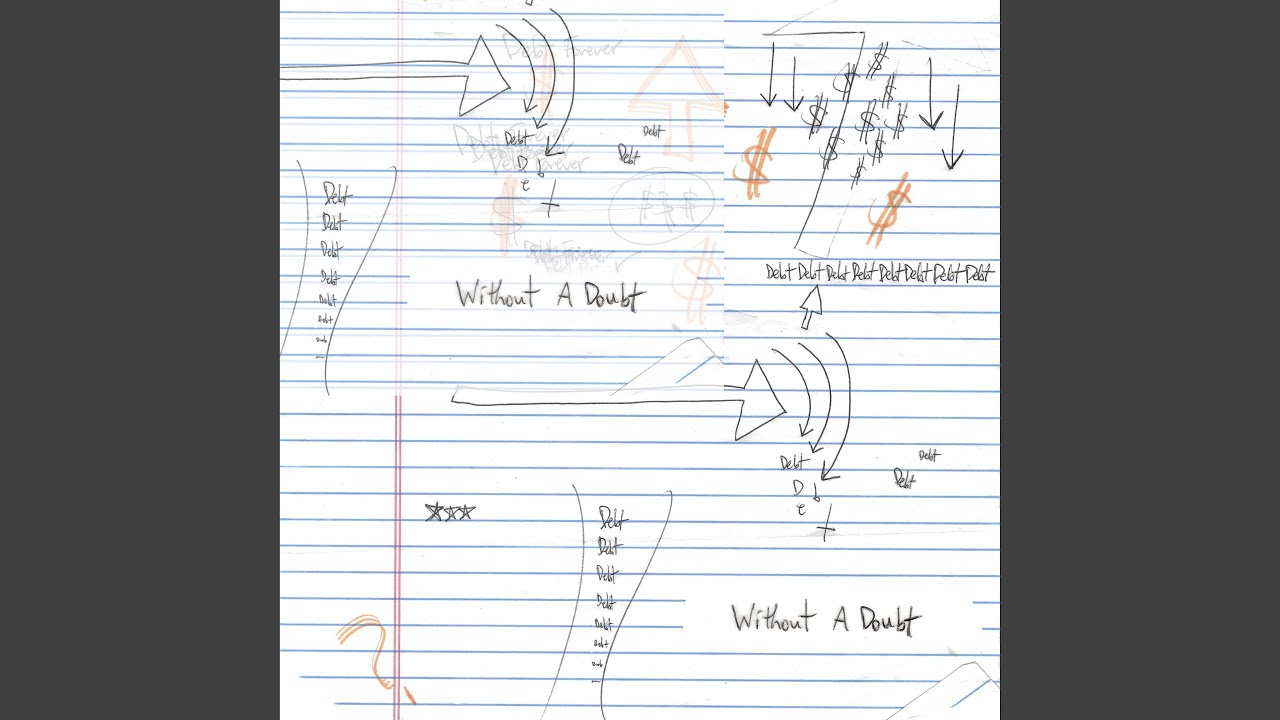 Debt Forever
$
$ $ $ $ $ $ $ $ $ $
Debt Forever
Debt
Debt
Debt Forever
Debt
D b
e
t
$
$
Debt
Debt
Debt
Debt
Debt
Debt
$
$ $ $
Debt Forever
$
Debt Debt Debt Debt Debt Debt Debt Debt
Without A Doubt
Debt
Debt
Debt
D b
e
t
Debt
Debt
Debt
Debt
Debt
Debt
Without A Doubt
?